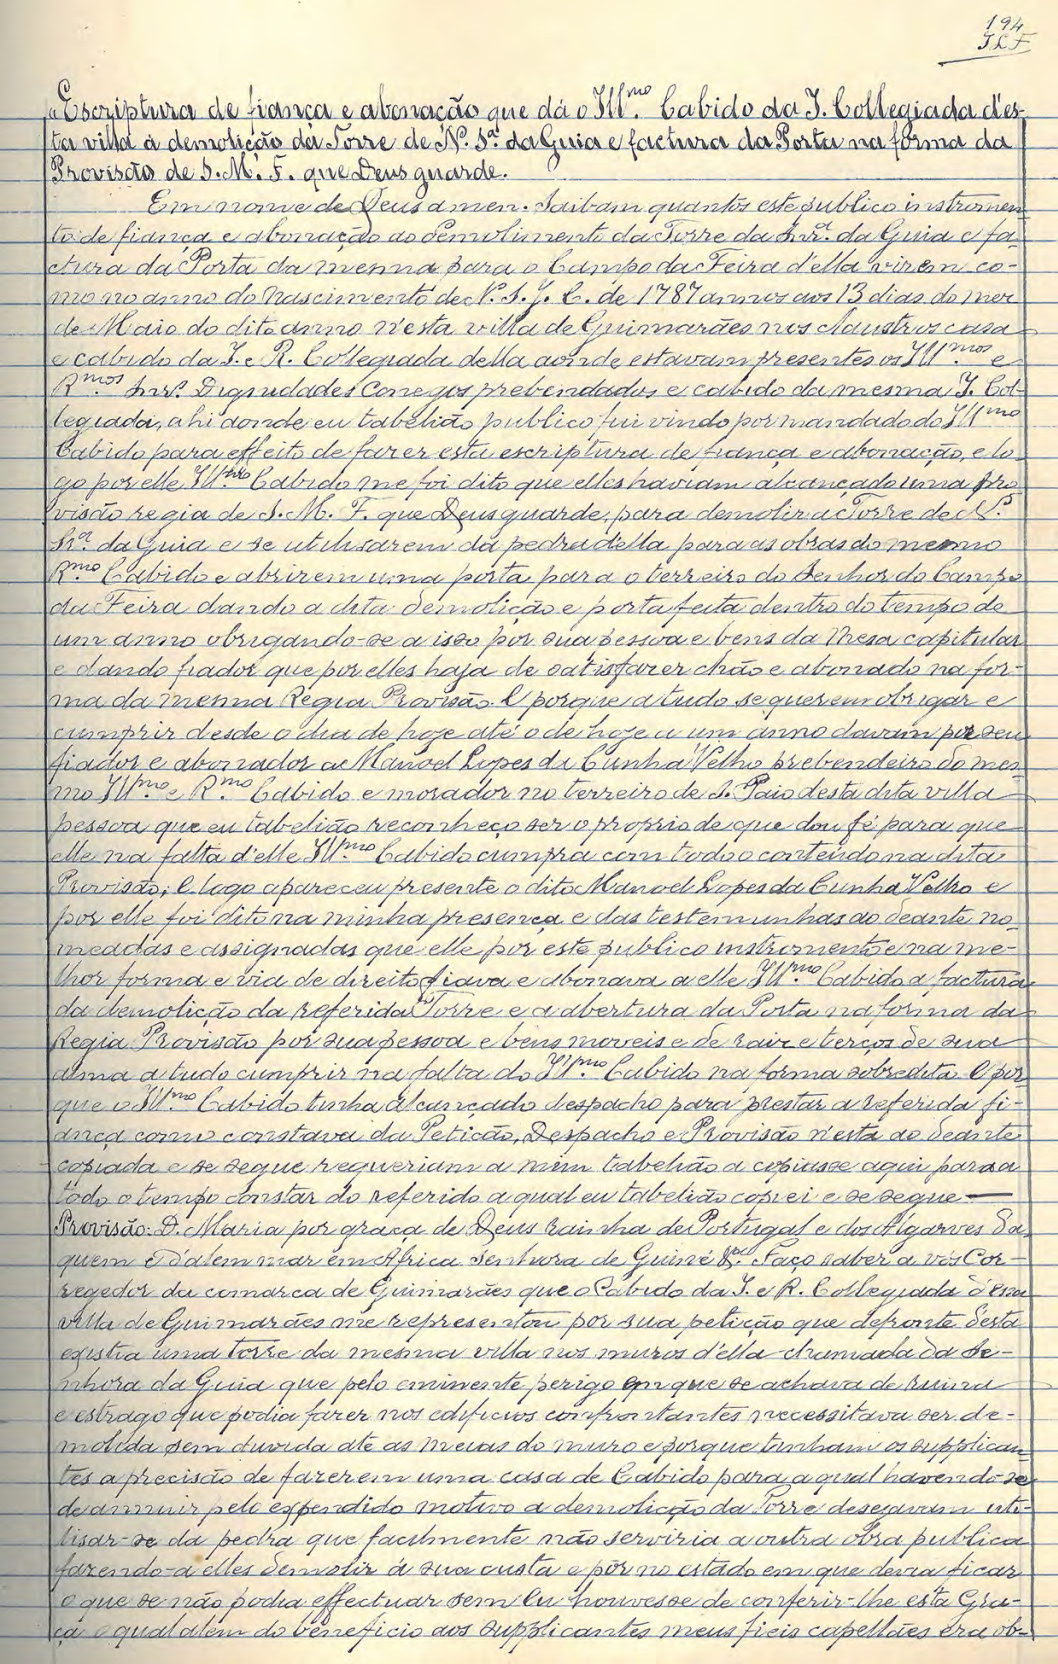 194
J L F
"Escriptura de fiança e abonação que dá o Ill.mo Cabido da I. Collegiada d'es-
ta villa á demolição da Torre de N. Sr.a da Guia e factura da Porta na forma da
Provisão de S. M. F. que Deus guarde.
Em nome de Deus amen. Saibam quantos este publico instromen
to de fiança e abonação ao demolimento da Torre da Snr.a da Guia e fa-
ctura da Porta da mesma para o Campo da Feira d'ella virem co-
mo no anno do nascimento de N. S. J. C. de 1787 annos aos 13 dias do mez
de Maio do dito anno n'esta villa de Guimarães nos claustros casa
e cabido da I. e R. Collegiada della aonde estavam presentes os Ill.mos e
R.mos Snrs. Dignidades Conegos prebendados e cabido da mesma I. Col-
legiada, ahi aonde eu tabelião publico fui vindo por mandado do Ill.mo
Cabido para effeito de fazer esta escriptura de fiança e abonação, e lo-
go por elle Ill.mo Cabido me foi dito que elles haviam alcançado uma pro
visão regia de S. M. F. que Deus guarde, para demolir a Torre de N.
Sr.a da Guia e se utilisarem da pedra d'ella para as obras do mesmo
R.mo Cabido e abrirem uma porta para o terreiro do Senhor do Campo
da Feira dando a dita demolição e porta feita dentro do tempo de
um anno obrigando-se a isso por sua pessoa e bens da Mesa capitular
e dando fiador que por elles haja de satisfazer chão e abonado na for-
ma da mesma Regia Provisão. E porque a tudo se querem obrigar e
cumprir desde o dia de hoje até o de hoje a um anno davam por seu
fiador e abonador a Manoel Lopes da Cunha Velho prebendeiro do mes-
mo Ill.mo e R.mo Cabido e morador no terreiro de S. Paio desta dita villa
pessoa que eu tabelião reconheço ser o proprio de que dou fé para que
elle na falta d'elle Ill.mo Cabido cumpra com todo o conteúdo na dita
Provisão; E logo appareceu presente o dito Manoel Lopes da Cunha Velho e
por elle foi dito na minha presença e das testemunhas ao deante no-
meadas e assignadas que elle por este publico instromento e na me-
lhor forma e via de direito fiava e abonava a elle Ill.mo Cabido a factura
da demolição da referida Torre e a abertura da Porta na forma da
Regia Provisão por sua pessoa e bens moveis e de raiz e terços de sua
alma a tudo cumprir na falta do Ill.mo Cabido na forma sobredita. E por
que o Ill.mo Cabido tinha alcançado despacho para prestar a referida fi-
ança como constava da Petição, Despacho e Provisão n'esta ao deante
copiada e se segue requeriam a mim tabelião a copiasse aqui para a
todo o tempo constar do referido a qual eu tabelião copiei e se segue —
Provisão: D. Maria por graça de Deus rainha de Portugal e dos Algarves da-
quem e d'alem mar em Africa Senhora de Guiné &.a Faço saber a vós Cor-
regedor da comarca de Guimarães que o Cabido da I. e R. Collegiada d'essa
villa de Guimarães me representou por sua petição que defronte d'esta
existia uma torre da mesma villa nos muros d'ella chamada da Se-
nhora da Guia que pelo eminente perigo em que se achava de ruina
e estrago que podia fazer nos edificios confrontantes necessitava ser de-
molida sem duvida até as meias do muro e porque tinham os supplican-
tes a precisão de fazerem uma casa de Cabido para a qual havendo-se
de annuir pelo expendido motivo a demolição da Torre desejavam uti-
lisar-se da pedra que facilmente não serviria a outra obra publica
fazendo-a elles demolir á sua custa e pôr no estado em que devia ficar
o que se não podia effectuar sem Eu houvesse de conferir-lhe esta Gra-
ça o qual alem do beneficio aos supplicantes meus fieis capellães era ob-